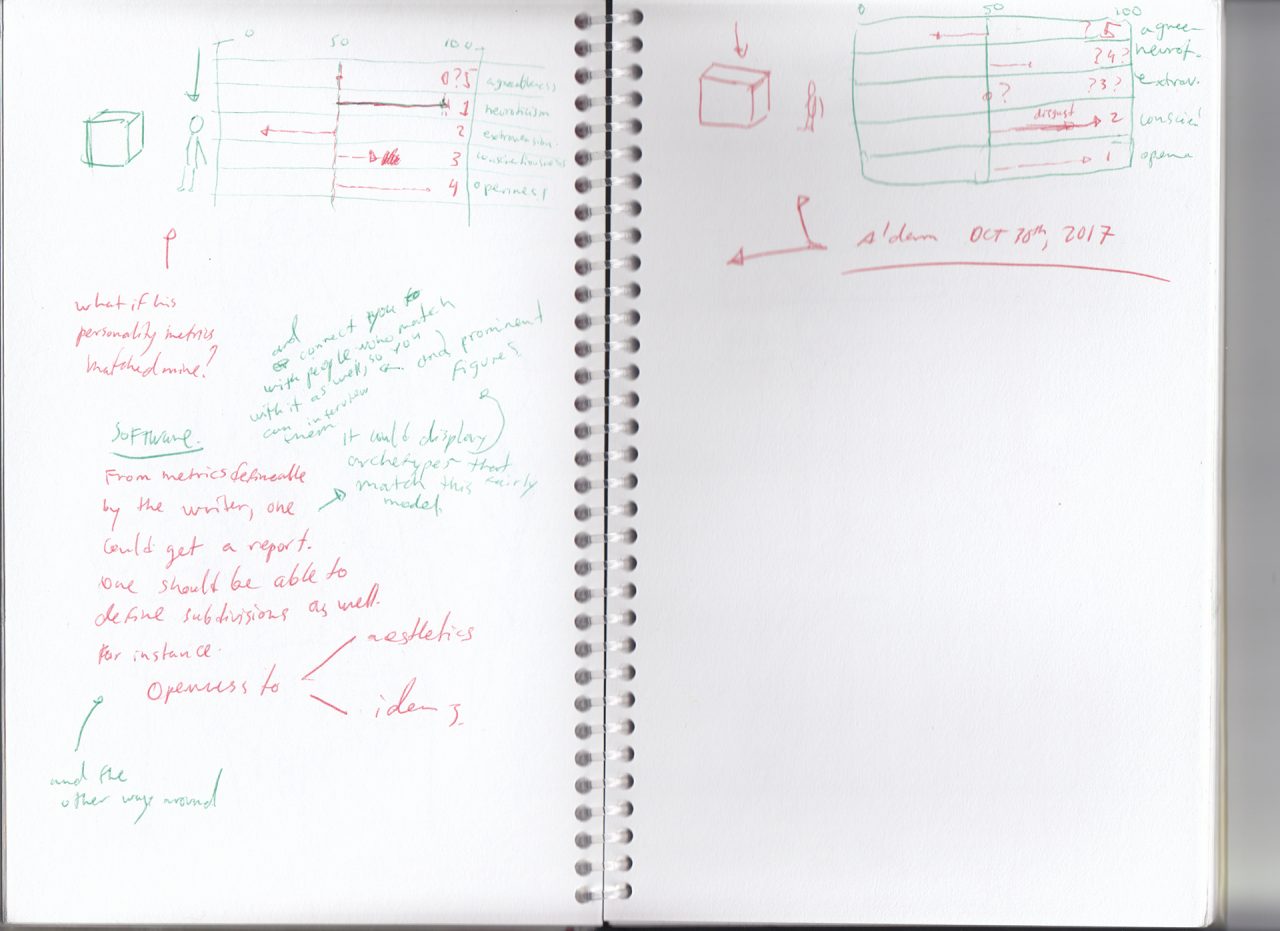 0 50 100
0?5 agreeableness
1 neuroticism
2 extraversion
3 conscientiousness
4 openness
what if his
personality metrics
matched mine?
and
connect you to
with people who match
with it as well, so you
can interview
them
and prominent
figures
it could display
archetypes that
match this fairly
model
Software.
From metrics defineable
by the writer, one
could get a report.
one should be able to
define subdivisions as well.
For instance.
Openness to
aesthetics
ideas.
and the
other way around
0 50 100
? 5 agree-
?4? neurot.
? ?3? extrav.
disgust 2 conscien
1 openn
A'dam OCT 30th, 2017